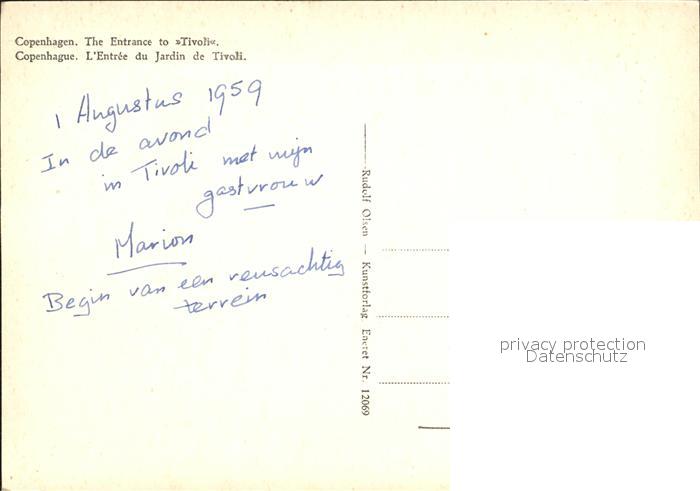 Copenhagen. The Entrance to »Tivoli«.
Copenhague. L'Entrée du Jardin de Tivoli.
1 Augustus 1959
In de avond
in Tivoli met mijn
gastvrouw
Marion
Begin van een reusachtig
terrein
Rudolf Olsen — Kunstforlag Eneret Nr. 12069
privacy protection
Datenschutz